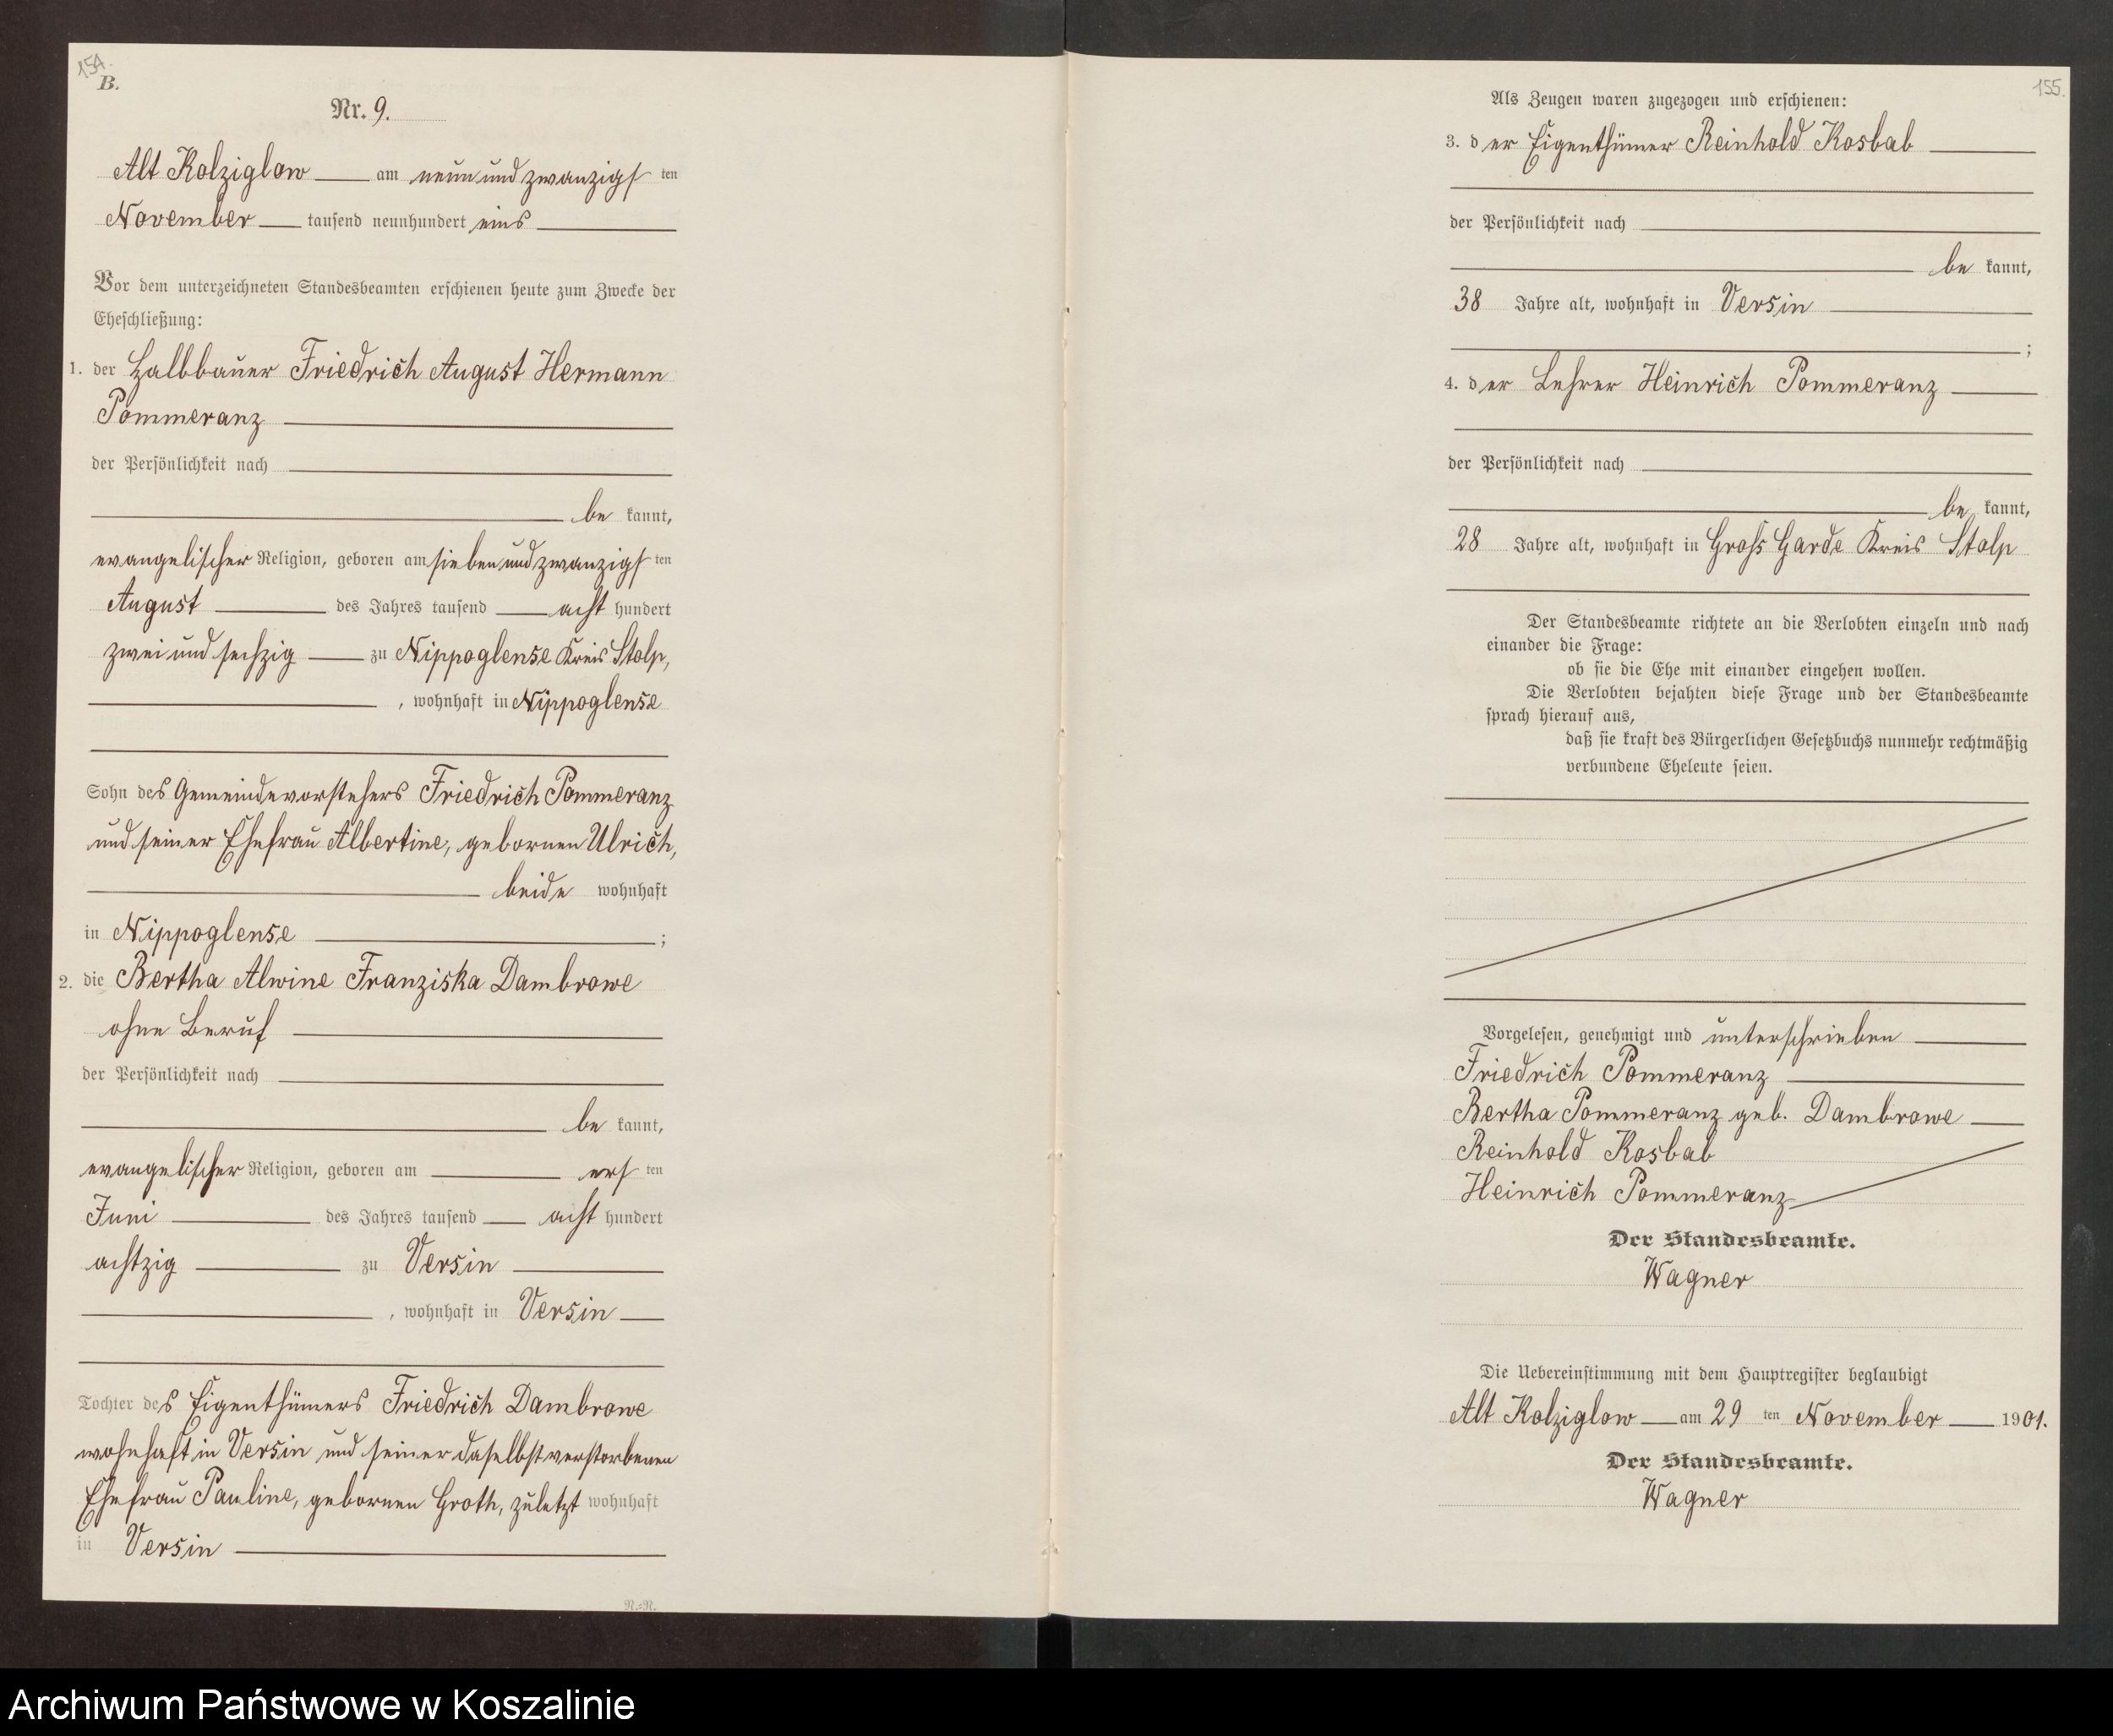 154.
B.
Nr. 9.
Alt Kolziglow am neun und zwanzigsten
November tausend neunhundert eins
Vor dem unterzeichneten Standesbeamten erschienen heute zum Zwecke der
Eheschließung:
1. der Halbbauer Friedrich August Hermann
Pommeranz
der Persönlichkeit nach
be kannt,
evangelischer Religion, geboren am sieben und zwanzigsten
August des Jahres tausend acht hundert
zwei und sechzig zu Nippoglense Kreis Stolp,
, wohnhaft in Nippoglense
Sohn des Gemeindevorstehers Friedrich Pommeranz
und seiner Ehefrau Albertine, gebornen Ulrich,
beide wohnhaft
in Nippoglense ;
2. die Bertha Alwine Franziska Dambrowe
ohne Beruf
der Persönlichkeit nach
be kannt,
evangelischer Religion, geboren am ersten
Juni des Jahres tausend acht hundert
achtzig zu Versin
, wohnhaft in Versin
Tochter des Eigenthümers Friedrich Dambrowe
wohnhaft in Versin und seiner daselbst verstorbenen
Ehefrau Pauline, gebornen Groth, zuletzt wohnhaft
in Versin
N.=N.
155.
Als Zeugen waren zugezogen und erschienen:
3. der Eigenthümer Reinhold Kosbab
der Persönlichkeit nach
be kannt,
38 Jahre alt, wohnhaft in Versin
;
4. der Lehrer Heinrich Pommeranz
der Persönlichkeit nach
be kannt,
28 Jahre alt, wohnhaft in Groß Garde Kreis Stolp
Der Standesbeamte richtete an die Verlobten einzeln und nach
einander die Frage:
ob sie die Ehe mit einander eingehen wollen.
Die Verlobten bejahten diese Frage und der Standesbeamte
sprach hierauf aus,
daß sie kraft des Bürgerlichen Gesetzbuchs nunmehr rechtmäßig
verbundene Eheleute seien.
Vorgelesen, genehmigt und unterschrieben
Friedrich Pommeranz
Bertha Pommeranz geb. Dambrowe
Reinhold Kosbab
Heinrich Pommeranz
Der Standesbeamte.
Wagner
Die Uebereinstimmung mit dem Hauptregister beglaubigt
Alt Kolziglow am 29 ten November 1901.
Der Standesbeamte.
Wagner
Archiwum Państwowe w Koszalinie